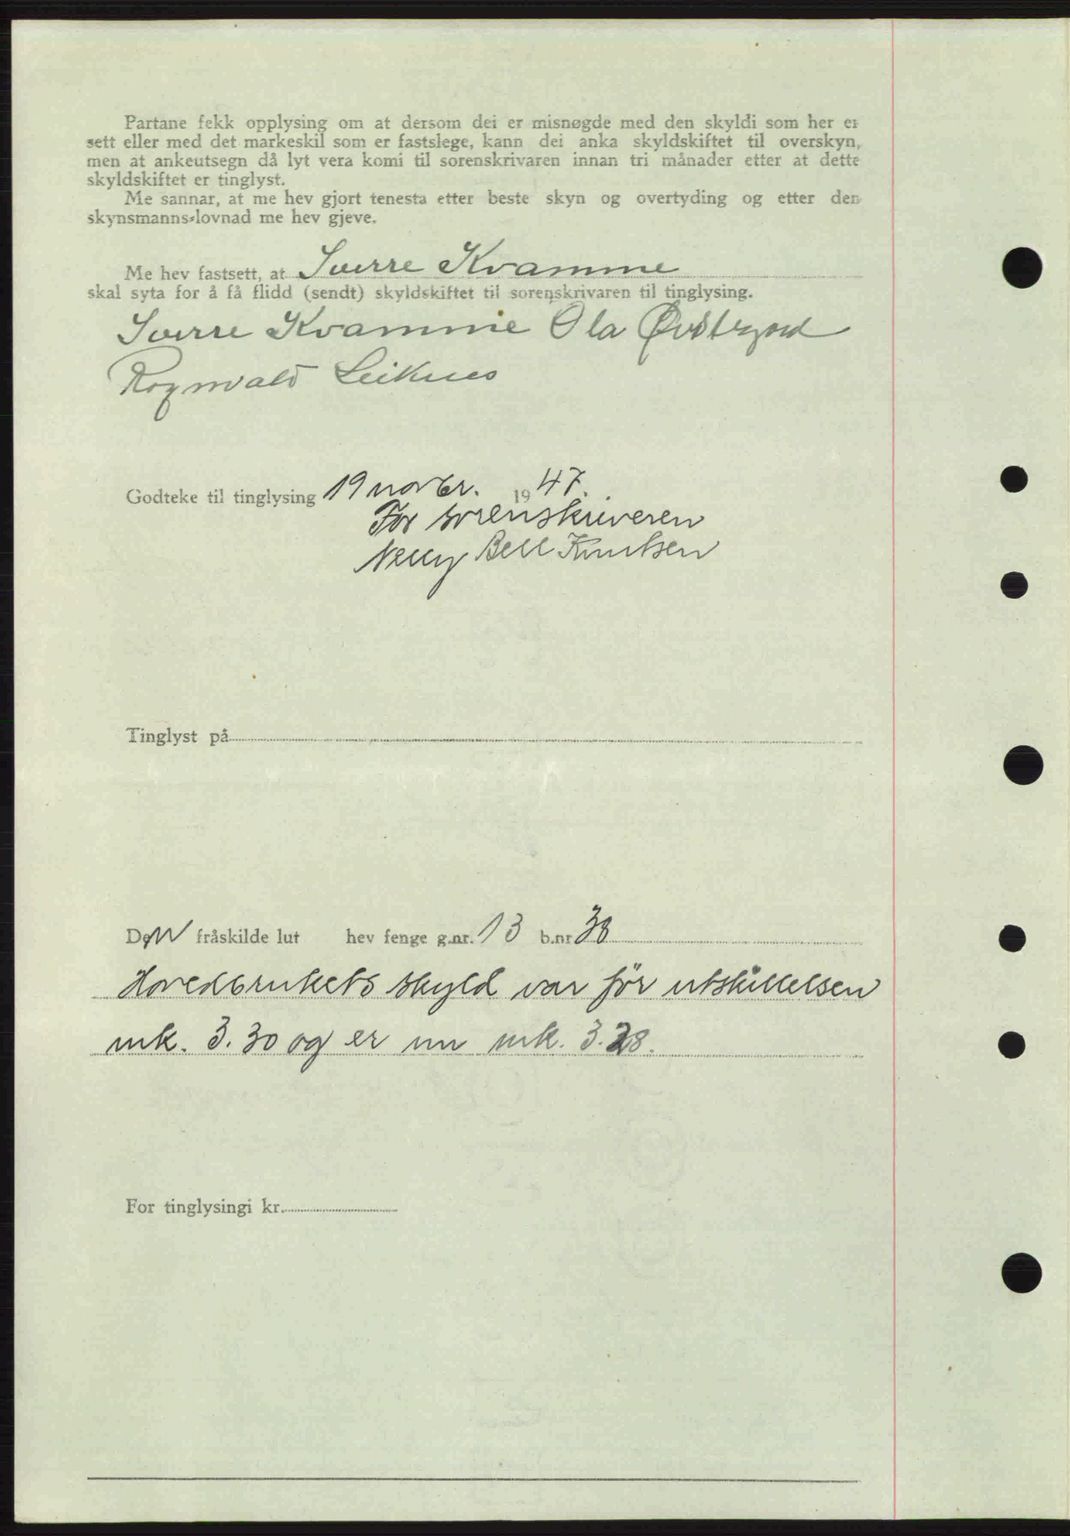 Partane fekk opplysing om at dersom dei er misnøgde med den skyldi som her er
sett eller med det markeskil som er fastslege, kann dei anka skyldskiftet til overskyn,
men at ankeutsegn då lyt vera komi til sorenskrivaren innan tri månader etter at dette
skyldskiftet er tinglyst.
Me sannar, at me hev gjort tenesta etter beste skyn og overtyding og etter den
skynsmanns-lovnad me hev gjeve.
Me hev fastsett, at Sverre Kvamme
skal syta for å få flidd (sendt) skyldskiftet til sorenskrivaren til tinglysing.
Sverre Kvamme Ola Øvstegård
Rognvald Leiknes
Godteke til tinglysing 19 novbr. 1947.
For sorenskriveren
Nelly Bell Knutsen
Tinglyst på
Den fråskilde lut hev fenge g.nr. 13 b.nr 38
Hovedbrukets skyld var før utskillelsen
mk. 3.30 og er nu mk. 3.28.
For tinglysingi kr.